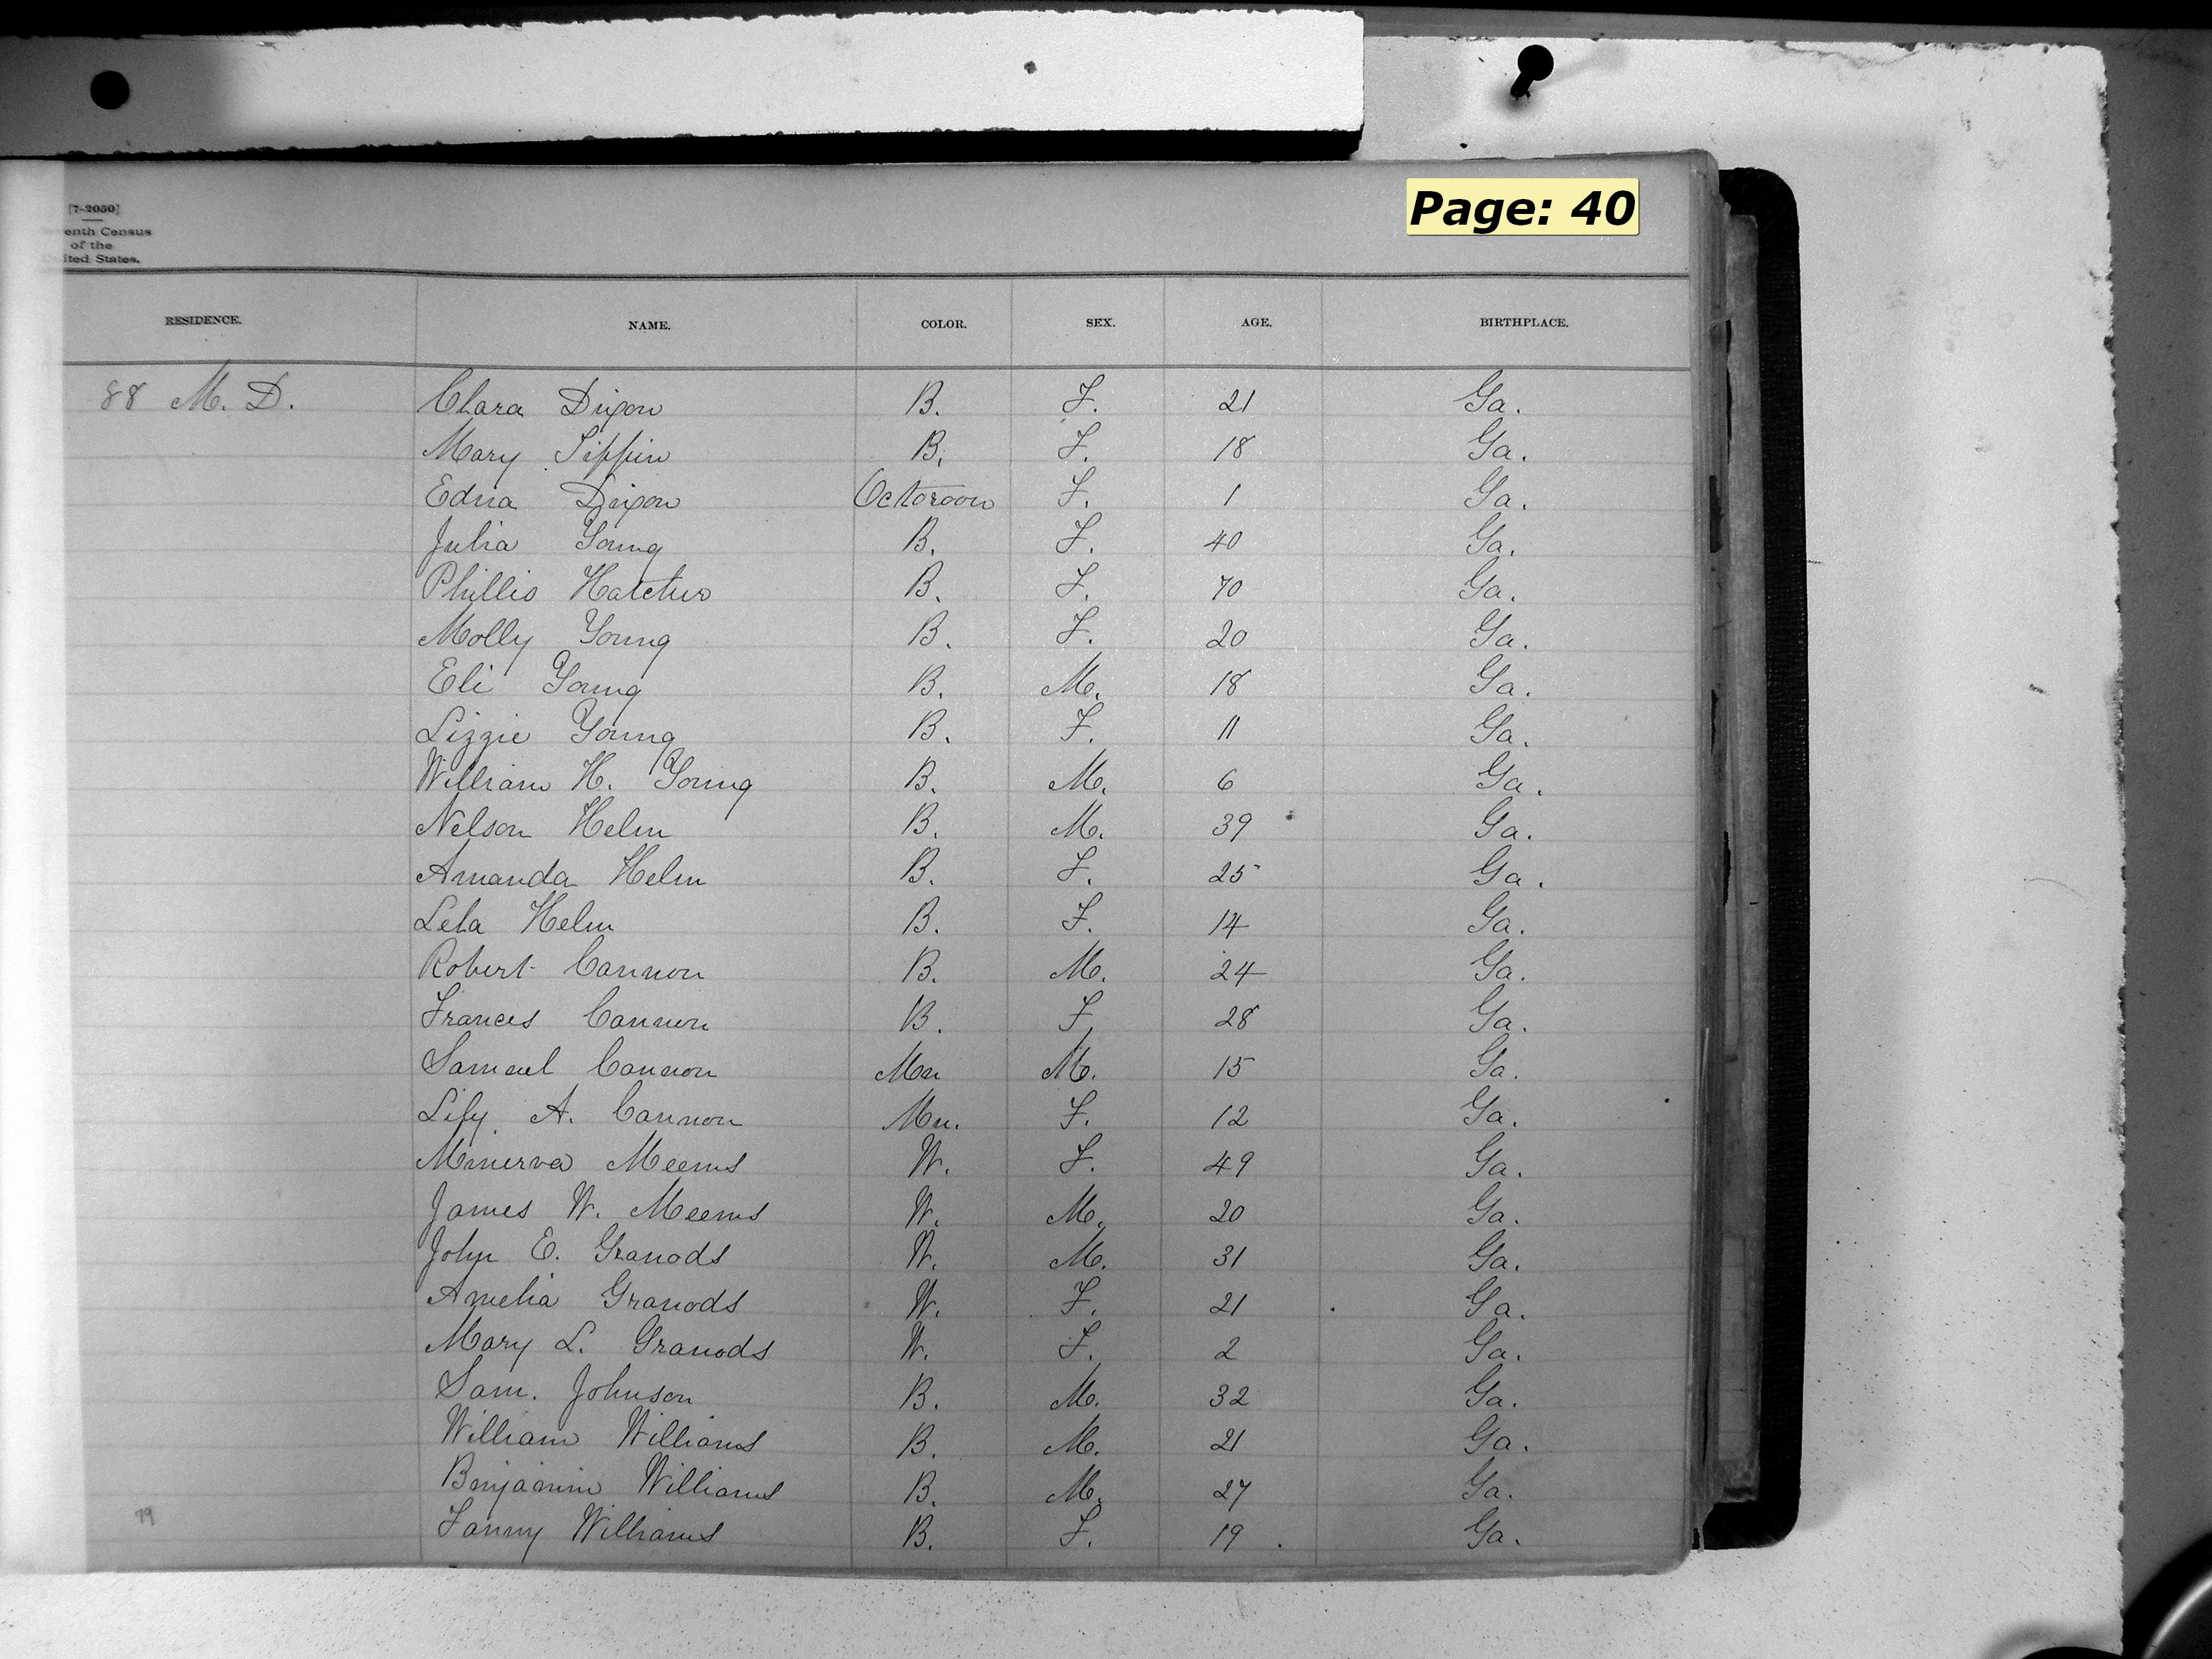 Page: 40
[7-2050]
enth Census
of the
ited States.
RESIDENCE. NAME. COLOR. SEX. AGE. BIRTHPLACE.
88 M. D. Clara Dixon B. F. 21 Ga.
Mary Tippin B. F. 18 Ga.
Edna Dixon Octoroon F. 1 Ga.
Julia Young B. F. 40 Ga.
Phillis Hatcher B. F. 70 Ga.
Molly Young B. F. 20 Ga.
Eli Young B. M. 18 Ga.
Lizzie Young B. F. 11 Ga.
William H. Young B. M. 6 Ga.
Nelson Helm B. M. 39 Ga.
Amanda Helm B. F. 25 Ga.
Lela Helm B. F. 14 Ga.
Robert Cannon B. M. 24 Ga.
Frances Cannon B. F. 28 Ga.
Samuel Cannon Mu M. 15 Ga.
A. Cannon Mu. F. 12 Ga.
Minerva Meems W. F. 49 Ga.
James W. Meems W. M. 20 Ga.
John E. Granods W. M. 31 Ga.
Amelia Granods W. F. 21 Ga.
Mary L. Granods W. F. 2 Ga.
Sam. Johnson B. M. 32 Ga.
William Williams B. M. 21 Ga.
Benjamin Williams B. M. 27 Ga.
79 Fanny Williams B. F. 19 Ga.